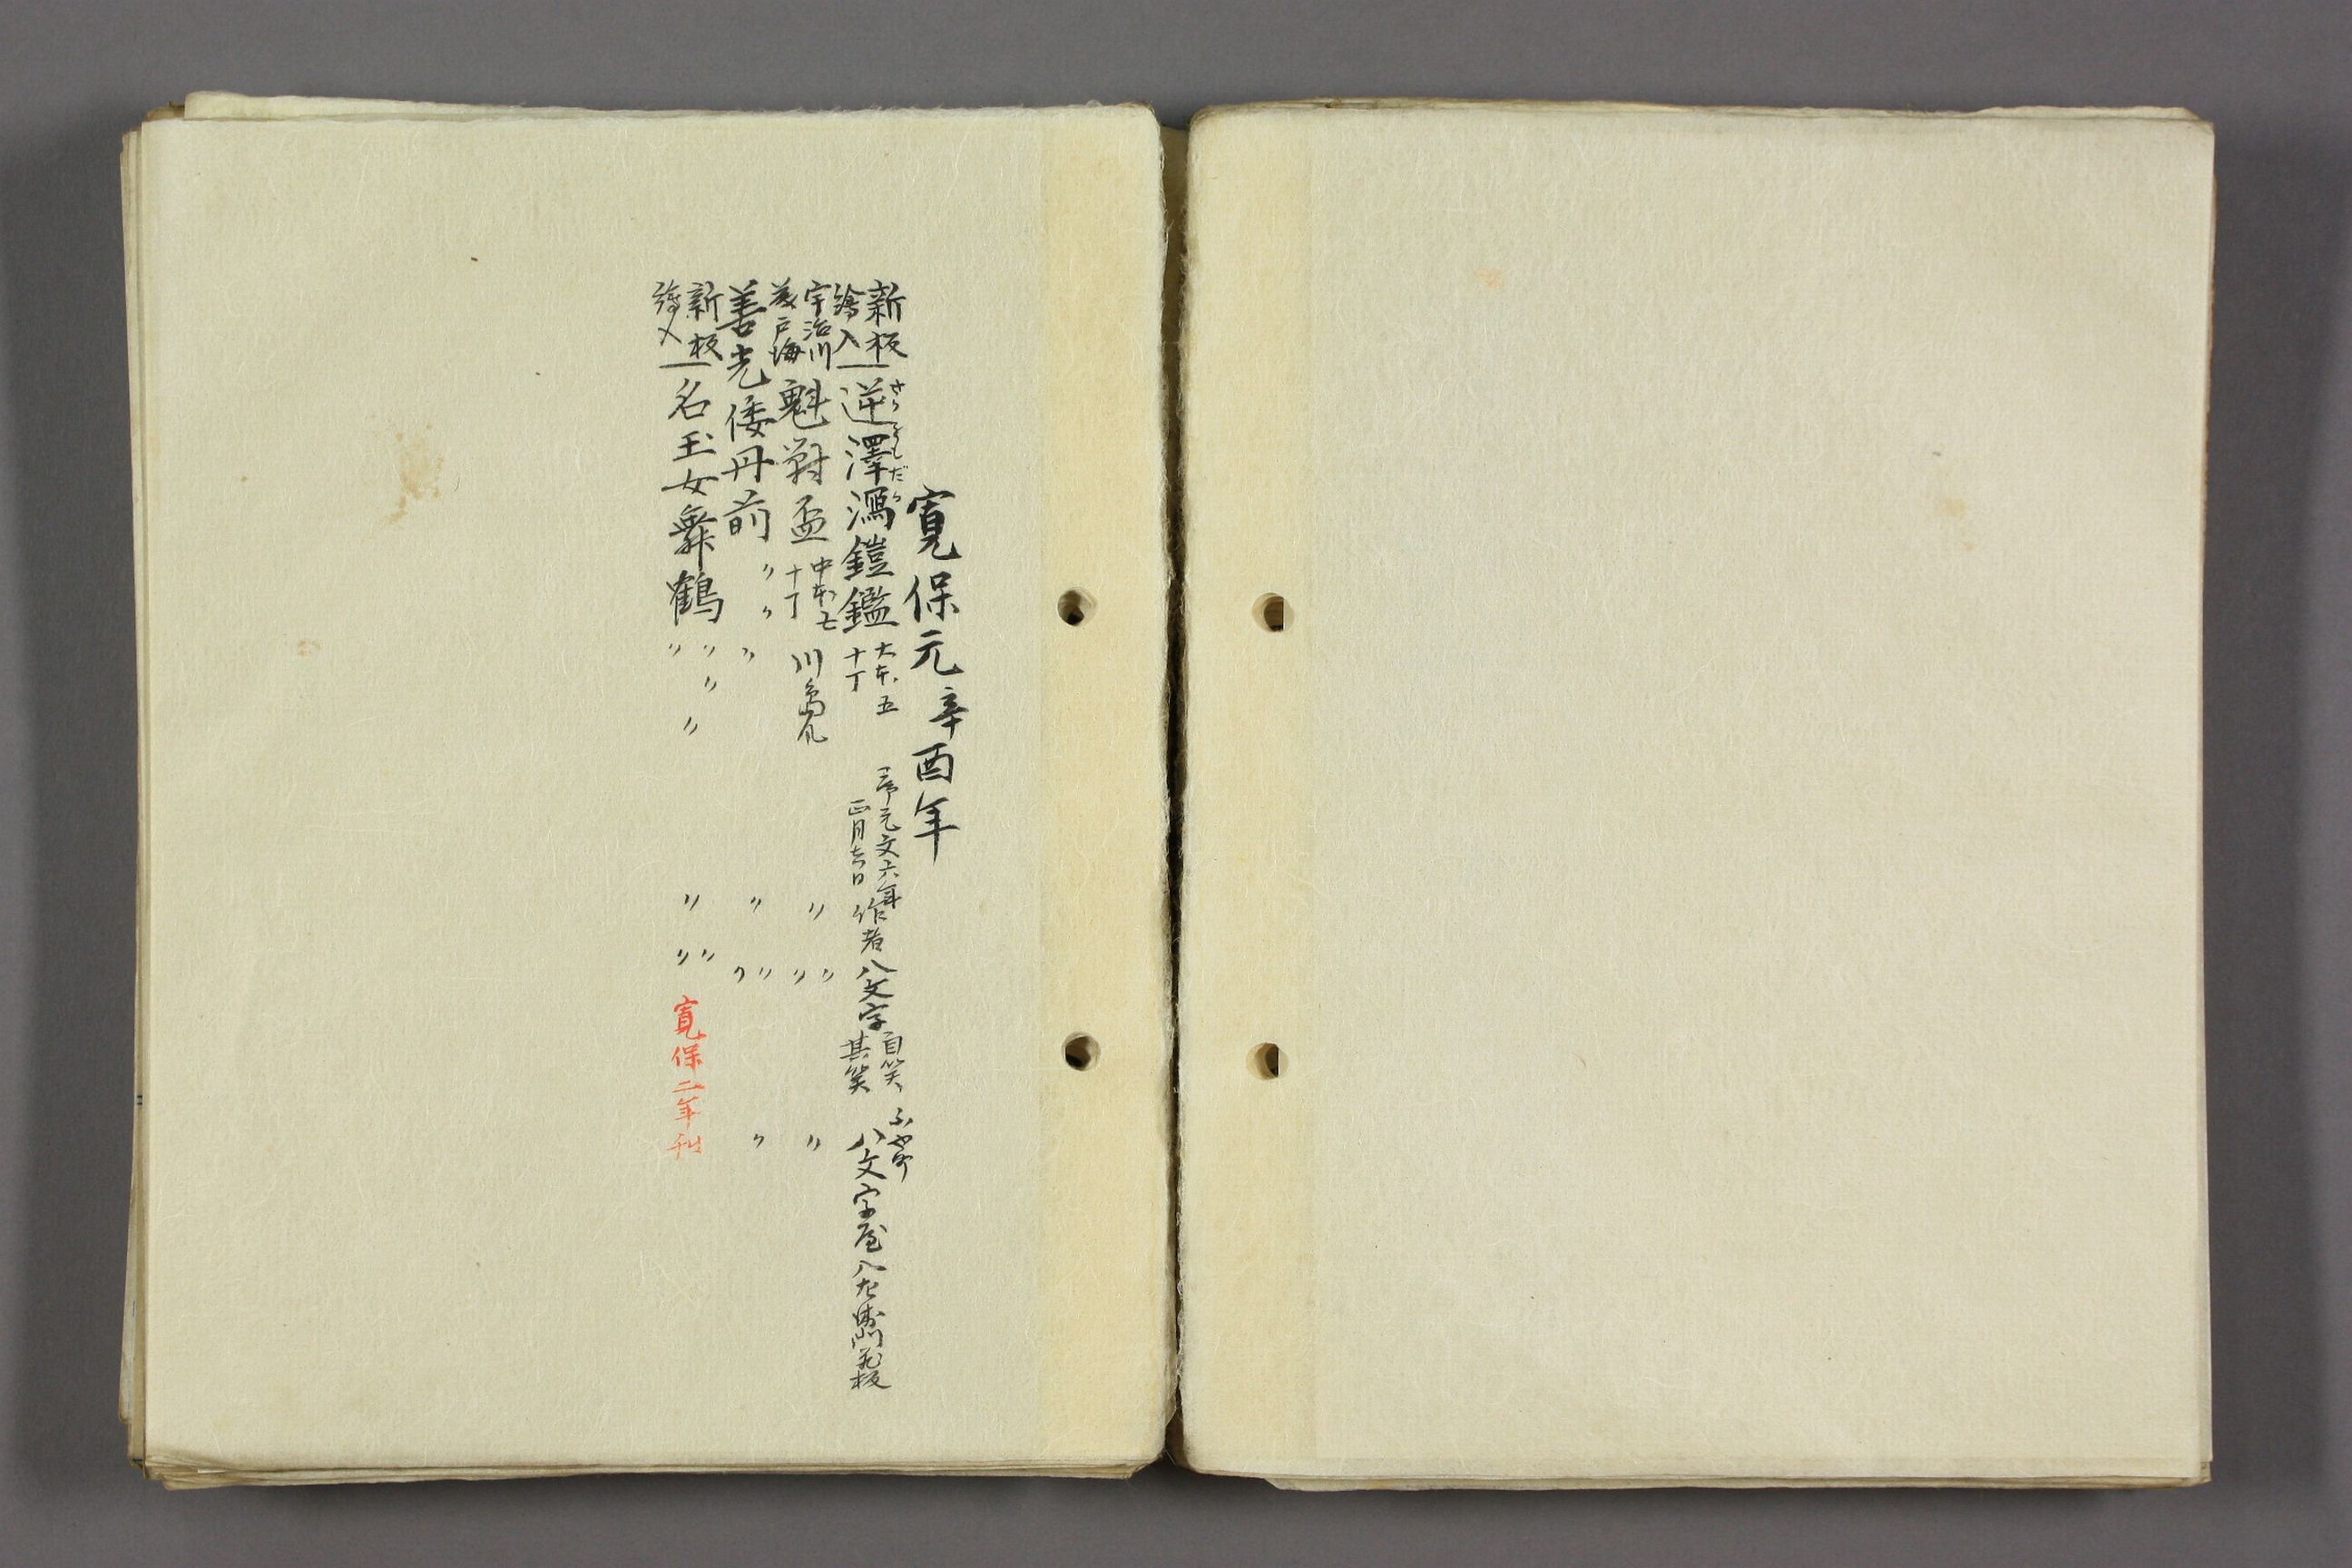 寛保元辛酉年
新板
繪入 逆澤瀉鎧鑑 大本五 十丁 序元文六年 正月吉日 作者 八文字 自笑 其笑 ふや町 八文字屋八左衛門板
宇治川
藤戸海 魁対盃 中本七 十丁 川島凡 〃 〃〃 〃
善光倭丹前 〃 〃 〃 〃 〃〃 〃
新板
繪入 名玉女舞鶴 〃 〃 〃 〃 〃 〃〃 寛保二年刊